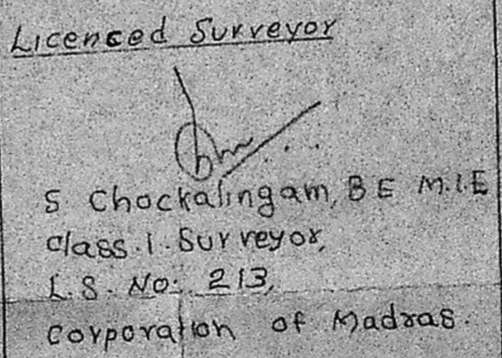 Licenced Surveyor
S Chockalingam, B E M.I.E
Class.1. Surveyor,
L.S. No: 213,
Corporation of Madras.